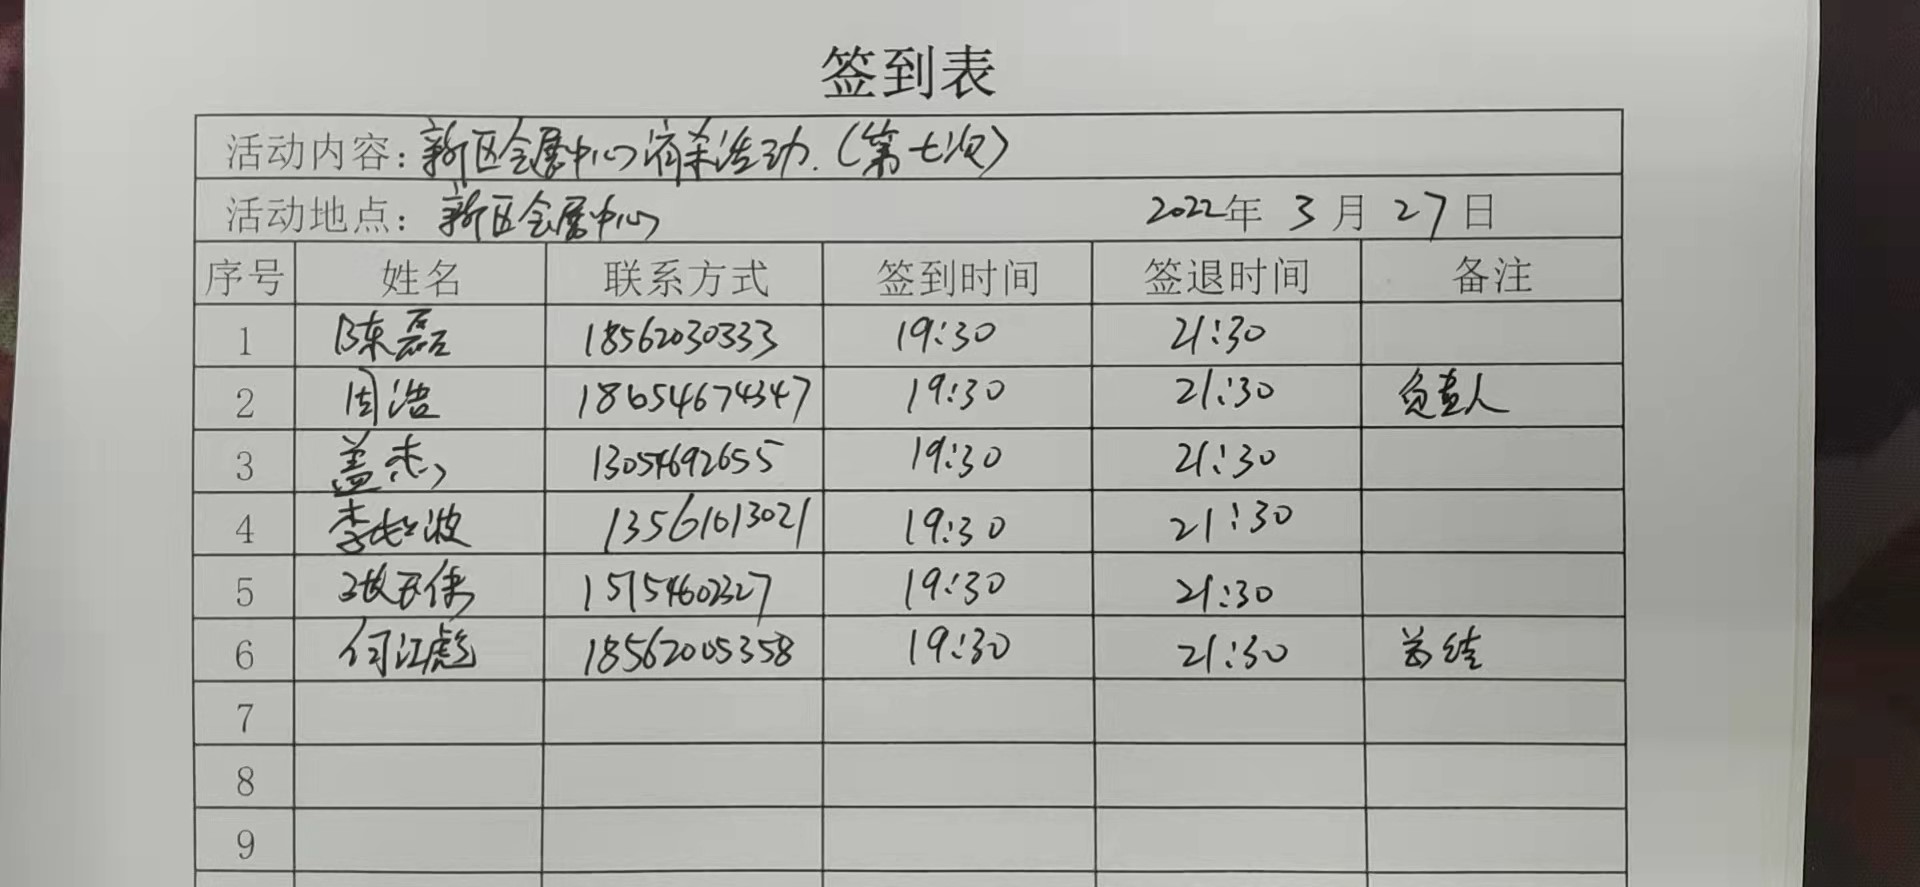 签到表
活动内容：新区会展中心消杀活动.（第七次）
活动地点：新区会展中心 2022年 3月 27日
序号 姓名 联系方式 签到时间 签退时间 备注
1 陈磊 18562030333 19:30 21:30
2 周浩 18654674347 19:30 21:30 负责人
3 盖志 13054692655 19:30 21:30
4 李 波 13561613021 19:30 21:30
5 19:30 21:30
6 何江彪 18562005358 19:30 21:30 总结
7
8
9